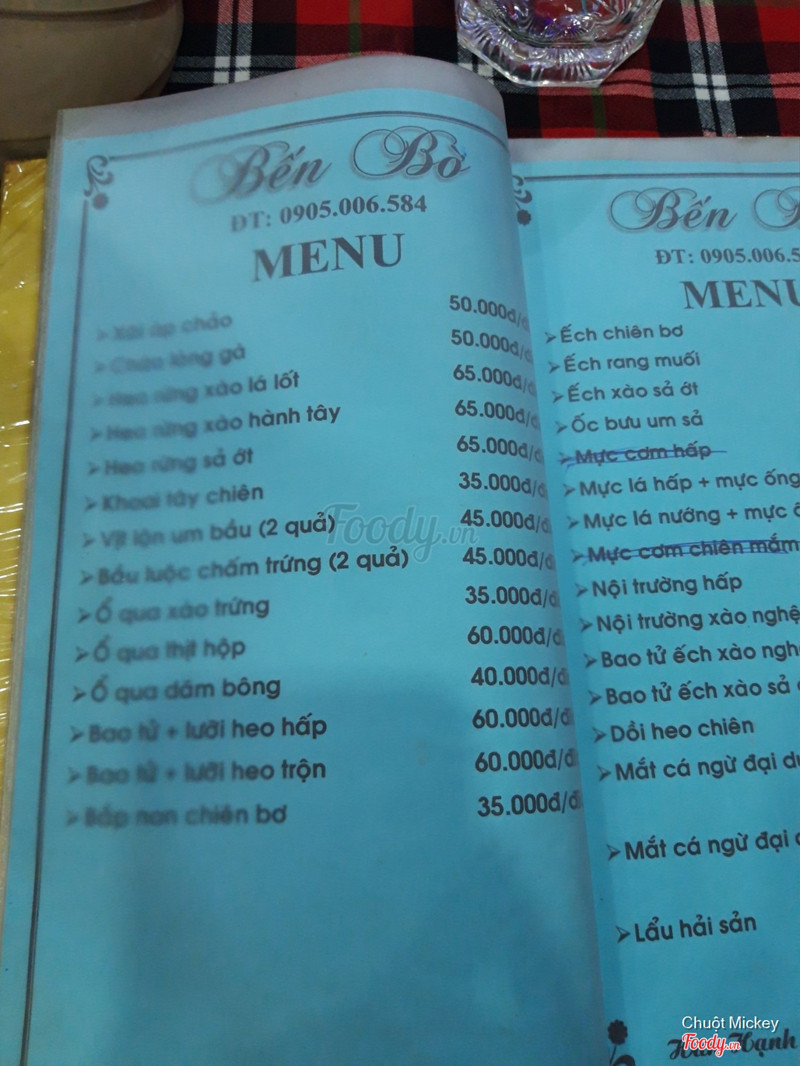 Bến Bò
ĐT: 0905.006.584
MENU
➢ Xôi áp chảo 50.000đ/đ
➢ Cháo lòng gà 50.000đ/đ
➢ Heo rừng xào lá lốt 65.000đ/đ
➢ Heo rừng xào hành tây 65.000đ/đ
➢ Heo rừng sả ớt 65.000đ/đ
➢ Khoai tây chiên 35.000đ/đ
➢ Vịt lộn um bầu (2 quả) 45.000đ/đ
➢ Bầu luộc chấm trứng (2 quả) 45.000đ/đ
➢ Ổ qua xào trứng 35.000đ/đ
➢ Ổ qua thịt hộp 60.000đ/đ
➢ Ổ qua dăm bông 40.000đ/đ
➢ Bao tử + lưỡi heo hấp 60.000đ/đ
➢ Bao tử + lưỡi heo trộn 60.000đ/đ
➢ Bắp non chiên bơ 35.000đ/đ
Bến
ĐT: 0905.006.5
MENU
➢ Ếch chiên bơ
➢ Ếch rang muối
➢ Ếch xào sả ớt
➢ Ốc bươu um sả
➢ Mực cơm hấp
➢ Mực lá hấp + mực ống
➢ Mực lá nướng + mực
➢ Mực cơm chiên mắm
➢ Nội trường hấp
➢ Nội trường xào nghệ
➢ Bao tử ếch xào ngh
➢ Bao tử ếch xào sả
➢ Dồi heo chiên
➢ Mắt cá ngừ đại d
➢ Mắt cá ngừ đại
➢ Lẩu hải sản
Hân Hạnh
Foody.vn
Chuột Mickey
Foody.vn